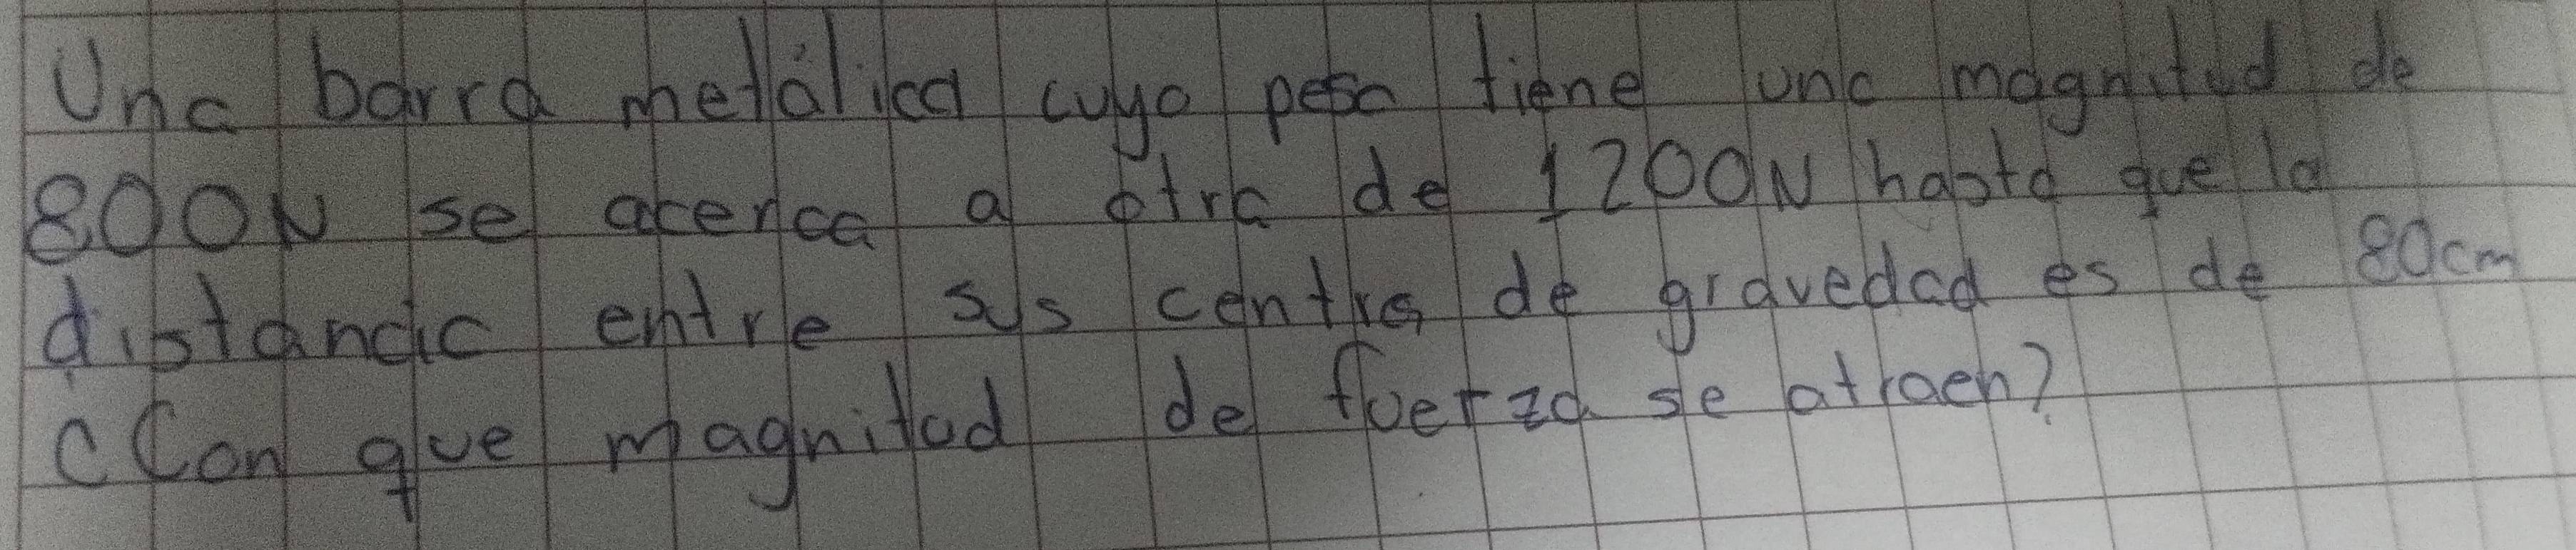 Una barra metálica cuyo peso tiene una magnitud de
800N se acerca a otra de 1200N hasta que la
distancia entre sus centros de gravedad es de 80cm
¿Con que magnitud de fuerza se atraen?